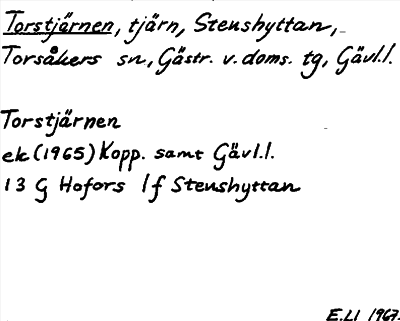 Torstjärnen, tjärn, Stenshyttan,
Torsåkers sn, Gästr. v. doms. tg, Gävl.l.
Torstjärnen
ek (1965) Kopp. samt Gävl.l.
13 G Hofors 1f Stenshyttan
E.LI 1967.